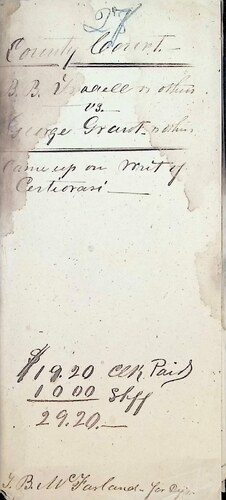 27
County Court
B. B. & others
vs.
George Grant & others
Came up on Writ of
Certiorari
$19.20 Clk Paid
10 00 Shff
29.20
J. B. McFarland - for